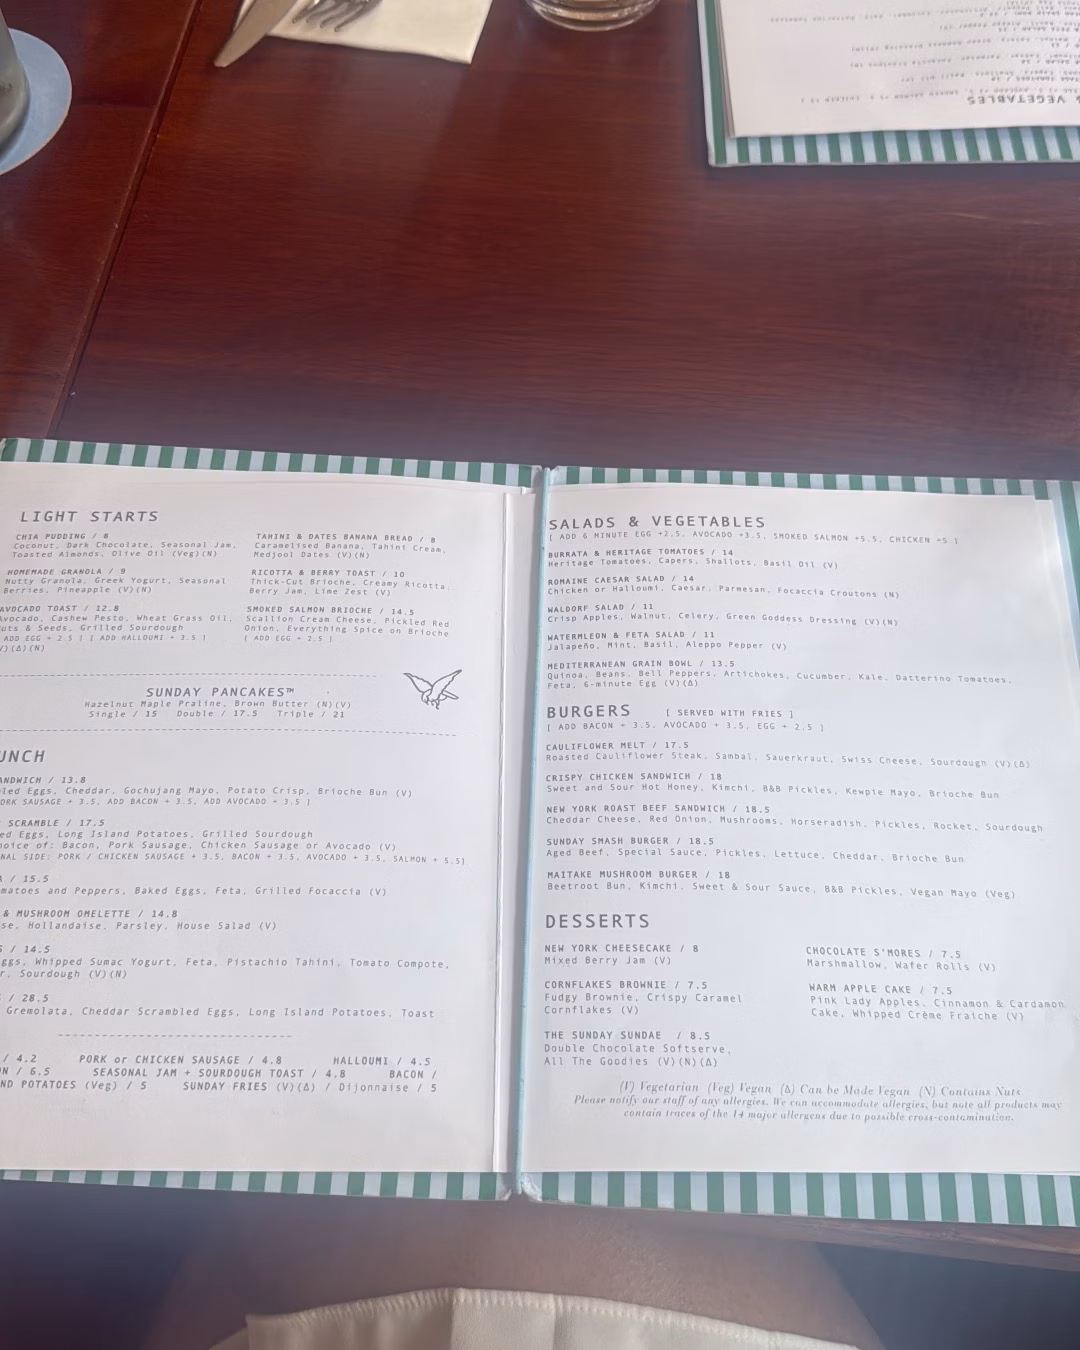 & VEGETABLES
LIGHT STARTS
CHIA PUDDING / 8
Coconut, Dark Chocolate, Seasonal Jam,
Toasted Almonds, Olive Oil (Veg)(N)
HOMEMADE GRANOLA / 9
Nutty Granola, Greek Yogurt, Seasonal
Berries, Pineapple (V)(N)
AVOCADO TOAST / 12.8
Avocado, Cashew Pesto, Wheat Grass Oil,
& Seeds, Grilled Sourdough
ADD EGG + 2.5 ] [ ADD HALLOUMI + 3.5 ]
(Δ)(N)
TAHINI & DATES BANANA BREAD / 8
Caramelised Banana, Tahini Cream,
Medjool Dates (V)(N)
RICOTTA & BERRY TOAST / 10
Thick-Cut Brioche, Creamy Ricotta,
Berry Jam, Lime Zest (V)
SMOKED SALMON BRIOCHE / 14.5
Scallion Cream Cheese, Pickled Red
Onion, Everything Spice on Brioche
[ ADD EGG + 2.5 ]
SUNDAY PANCAKES™
Hazelnut Maple Praline, Brown Butter (N)(V)
Single / 15 Double / 17.5 Triple / 21
UNCH
ANDWICH / 13.8
led Eggs, Cheddar, Gochujang Mayo, Potato Crisp, Brioche Bun (V)
ORK SAUSAGE + 3.5, ADD BACON + 3.5, ADD AVOCADO + 3.5 ]
SCRAMBLE / 17.5
ed Eggs, Long Island Potatoes, Grilled Sourdough
hoice of: Bacon, Pork Sausage, Chicken Sausage or Avocado (V)
NAL SIDE: PORK / CHICKEN SAUSAGE + 3.5, BACON + 3.5, AVOCADO + 3.5, SALMON + 5.5]
/ 15.5
matoes and Peppers, Baked Eggs, Feta, Grilled Focaccia (V)
& MUSHROOM OMELETTE / 14.8
se, Hollandaise, Parsley, House Salad (V)
/ 14.5
ggs, Whipped Sumac Yogurt, Feta, Pistachio Tahini, Tomato Compote,
r, Sourdough (V)(N)
/ 28.5
Gremolata, Cheddar Scrambled Eggs, Long Island Potatoes, Toast
/ 4.2 PORK or CHICKEN SAUSAGE / 4.8 HALLOUMI / 4.5
N / 6.5 SEASONAL JAM + SOURDOUGH TOAST / 4.8 BACON /
ND POTATOES (Veg) / 5 SUNDAY FRIES (V)(Δ) / Dijonnaise / 5
SALADS & VEGETABLES
[ ADD 6 MINUTE EGG +2.5, AVOCADO +3.5, SMOKED SALMON +5.5, CHICKEN +5 ]
BURRATA & HERITAGE TOMATOES / 14
Heritage Tomatoes, Capers, Shallots, Basil Oil (V)
ROMAINE CAESAR SALAD / 14
Chicken or Halloumi, Caesar, Parmesan, Focaccia Croutons (N)
WALDORF SALAD / 11
Crisp Apples, Walnut, Celery, Green Goddess Dressing (V)(N)
WATERMLEON & FETA SALAD / 11
Jalapeño, Mint, Basil, Aleppo Pepper (V)
MEDITERRANEAN GRAIN BOWL / 13.5
Quinoa, Beans, Bell Peppers, Artichokes, Cucumber, Kale, Datterino Tomatoes,
Feta, 6-minute Egg (V)(Δ)
BURGERS [ SERVED WITH FRIES ]
[ ADD BACON + 3.5, AVOCADO + 3.5, EGG + 2.5 ]
CAULIFLOWER MELT / 17.5
Roasted Cauliflower Steak, Sambal, Sauerkraut, Swiss Cheese, Sourdough (V)(Δ)
CRISPY CHICKEN SANDWICH / 18
Sweet and Sour Hot Honey, Kimchi, B&B Pickles, Kewpie Mayo, Brioche Bun
NEW YORK ROAST BEEF SANDWICH / 18.5
Cheddar Cheese, Red Onion, Mushrooms, Horseradish, Pickles, Rocket, Sourdough
SUNDAY SMASH BURGER / 18.5
Aged Beef, Special Sauce, Pickles, Lettuce, Cheddar, Brioche Bun
MAITAKE MUSHROOM BURGER / 18
Beetroot Bun, Kimchi, Sweet & Sour Sauce, B&B Pickles, Vegan Mayo (Veg)
DESSERTS
NEW YORK CHEESECAKE / 8
Mixed Berry Jam (V)
CORNFLAKES BROWNIE / 7.5
Fudgy Brownie, Crispy Caramel
Cornflakes (V)
THE SUNDAY SUNDAE / 8.5
Double Chocolate Softserve,
All The Goodies (V)(N)(Δ)
CHOCOLATE S'MORES / 7.5
Marshmallow, Wafer Rolls (V)
WARM APPLE CAKE / 7.5
Pink Lady Apples, Cinnamon & Cardamon
Cake, Whipped Crème Fraiche (V)
(V) Vegetarian (Veg) Vegan (Δ) Can be Made Vegan (N) Contains Nuts
Please notify our staff of any allergies. We can accommodate allergies, but note all products may
contain traces of the 14 major allergens due to possible cross-contamination.